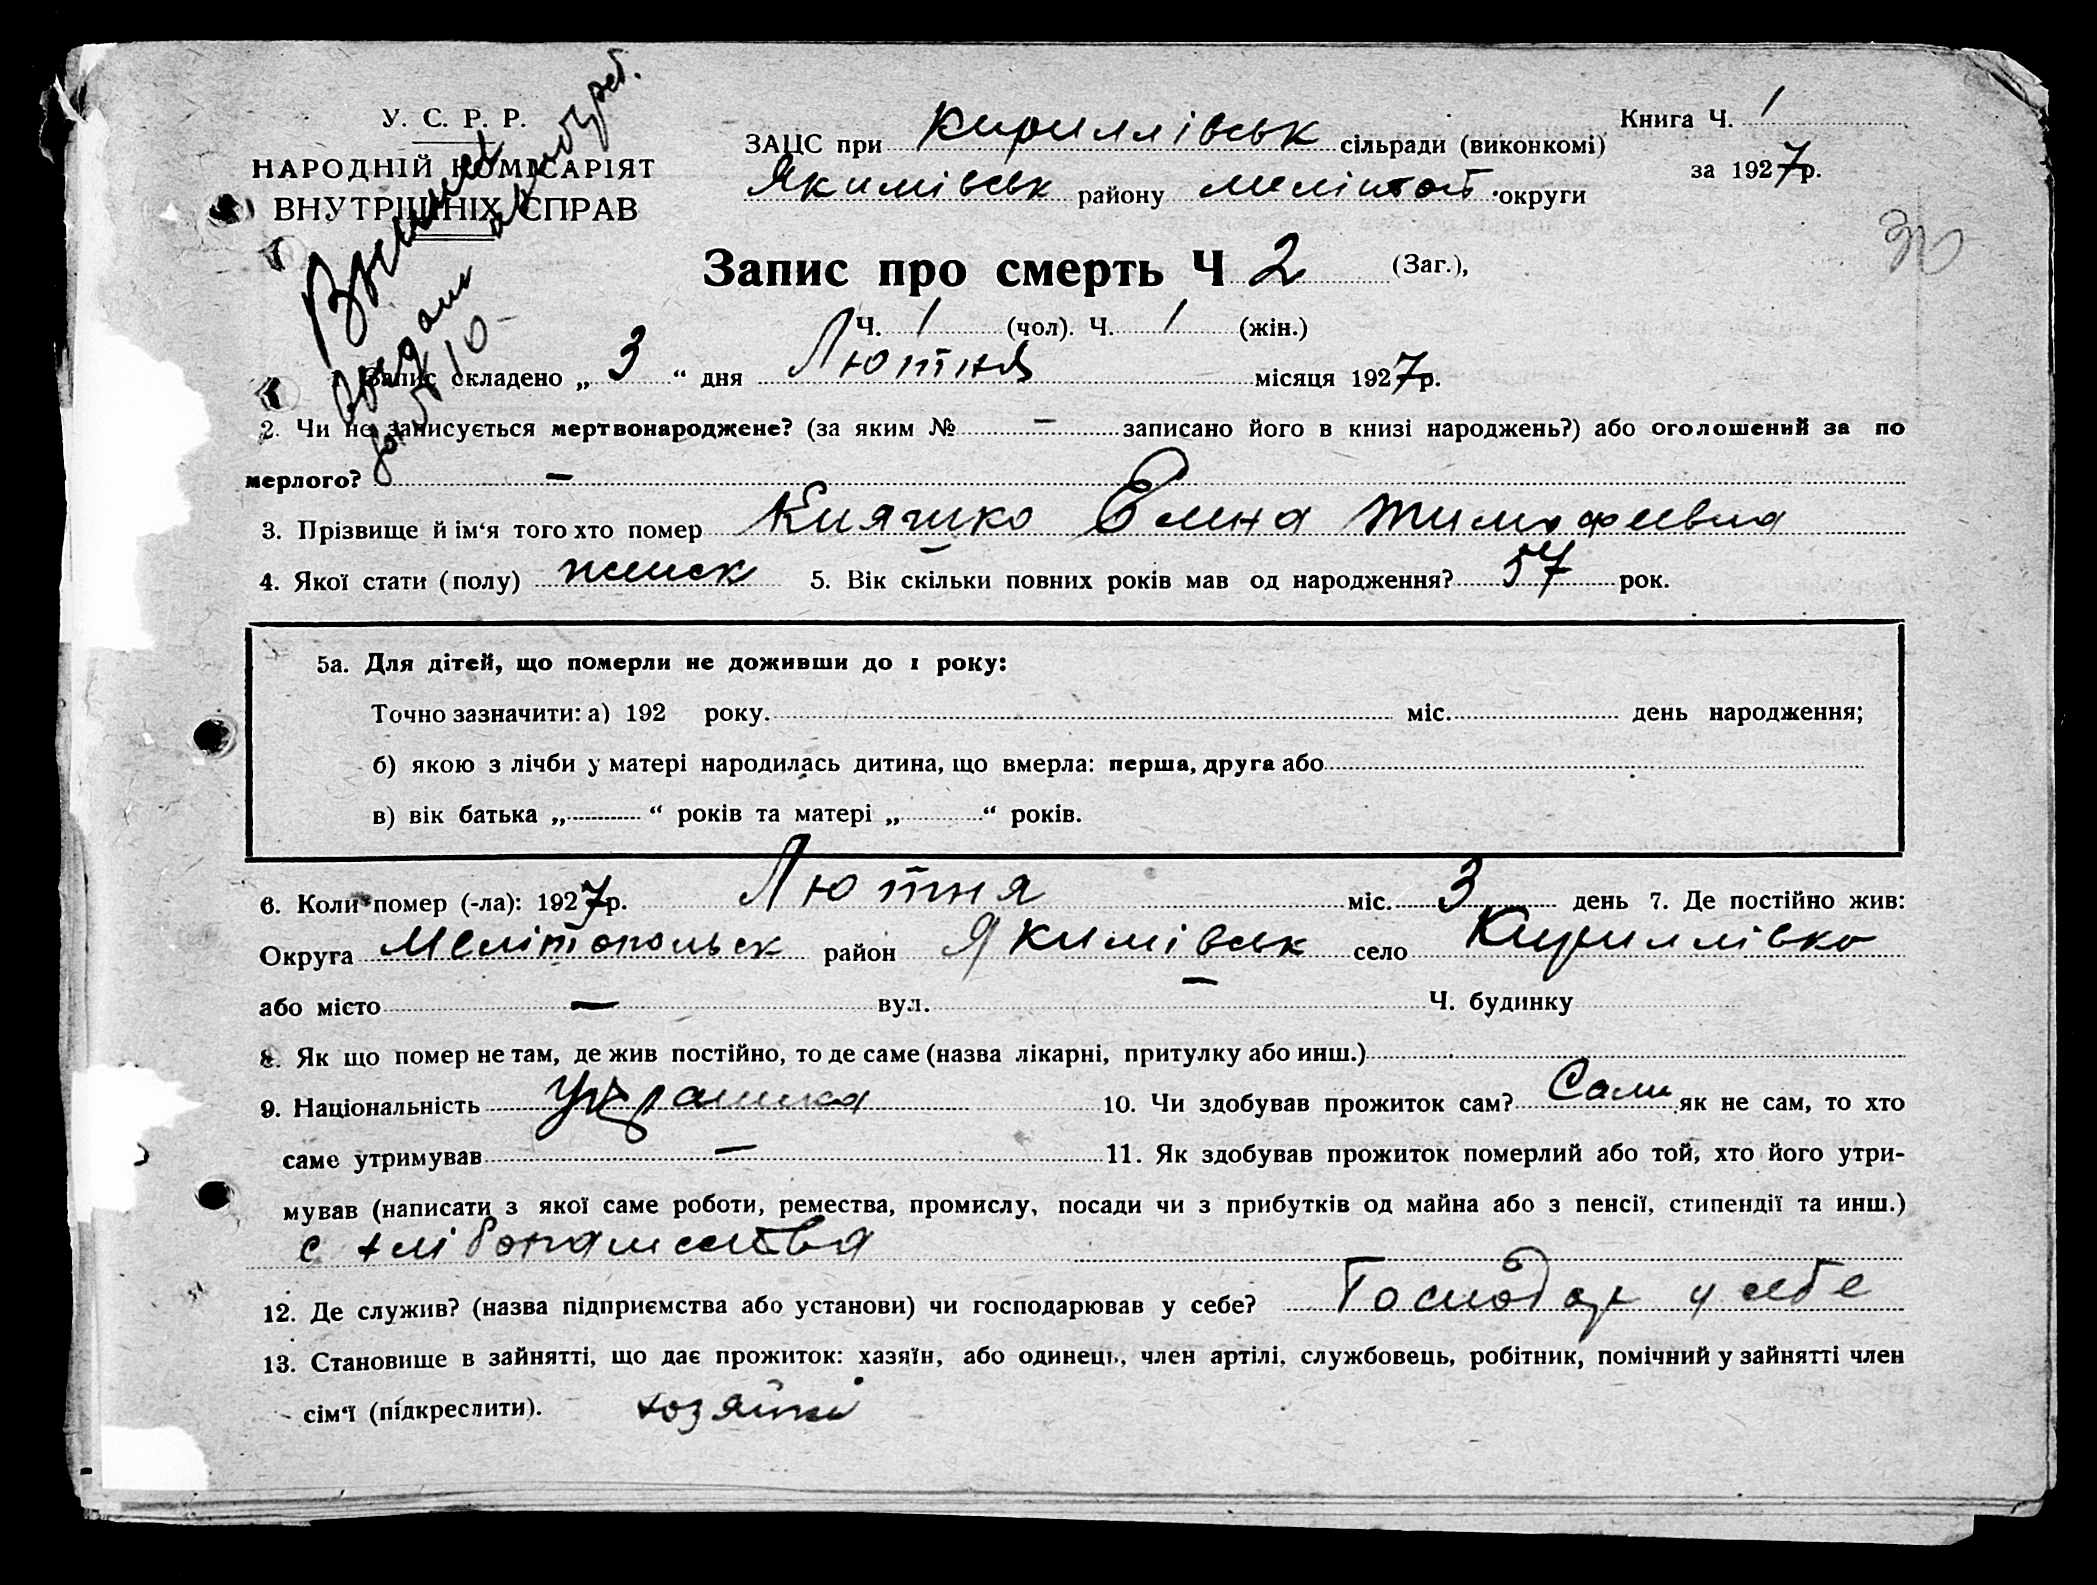 У. С. Р. Р.
НАРОДНІЙ КОМІСАРІЯТ
ВНУТРІШНІХ СПРАВ
ЗАЦС при Кириллівськ сільради (виконкомі)
Якимівськ району Меліtoп. округи
Книга Ч. 1
за 1927р.
30
Запис про смерть Ч 2 (Заг.),
Ч. 1 (чол). Ч. 1 (жін.)
Запис складено „ 3 “ дня Лютня місяця 1927р.
2. Чи не записується мертвонароджене? (за яким № — записано його в книзі народжень?) або оголошений за по
мерлого? —
3. Прізвище й ім‘я того хто помер Княшко Елена Тимофеевна
4. Якої стати (полу) женск 5. Вік скільки повних років мав од народження? 57 рок.
5а. Для дітей, що померли не доживши до 1 року:
Точно зазначити: а) 192 року. міс. день народження;
б) якою з лічби у матері народилась дитина, що вмерла: перша, друга або
в) вік батька „ “ років та матері „ “ років.
6. Коли помер (-ла): 1927р. Лютня міс. 3 день 7. Де постійно жив:
Округа Мелітопольск район Якимівськ село Кириллівка
або місто — вул. — Ч. будинку
8. Як що помер не там, де жив постійно, то де саме (назва лікарні, притулку або инш.)
9. Національність Украинка 10. Чи здобував прожиток сам? Сам як не сам, то хто
саме утримував — 11. Як здобував прожиток померлий або той, хто його утри-
мував (написати з якої саме роботи, ремества, промислу, посади чи з прибутків од майна або з пенсії, стипендії та инш.)
с хлібопашества
12. Де служив? (назва підприємства або установи) чи господарював у себе? Господар у себе
13. Становище в зайнятті, що дає прожиток: хазяїн, або одинець, член артілі, службовець, робітник, помічний у зайнятті член
сім‘ї (підкреслити). хозяйка